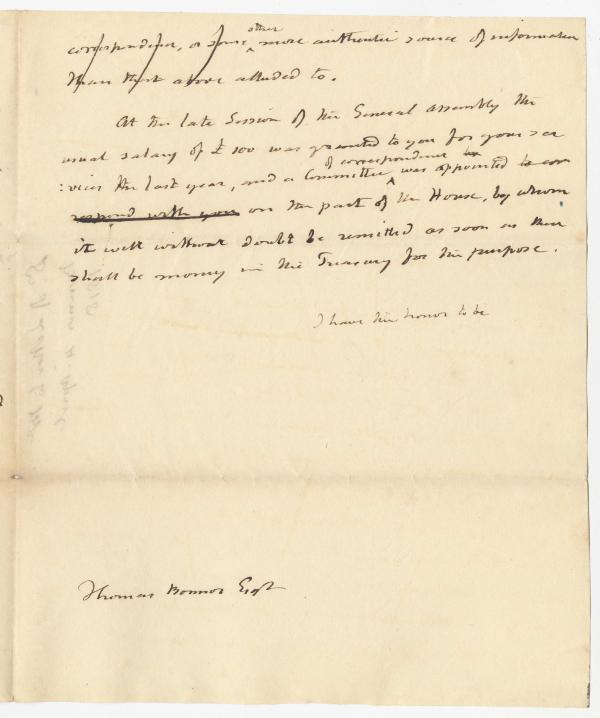 correspondence, or some ^other more authentic source of information
than that above alluded to.
At the late Session of the General Assembly the
usual salary of £ 100 was granted to you for your ser
:vices the last year, and a Committee ^of correspondence was appointed to cor
respond with you on the part of the House, by whom
it will without doubt be remitted as soon as there
shall be money in the Treasury for the purpose.
I have the honor to be
Thomas Bonnor Esqr